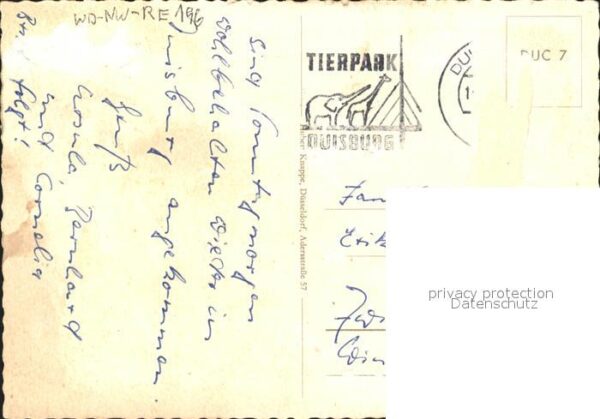 WD-NW-RE 196
Sind Sonntagmorgen
wohlbehalten wieder in
Duisburg angekommen.
Gruß
Ursula, Bernhard
und Cornelia
folgt!
TIERPARK
DUISBURG
DU
DUC 7
Knappe, Düsseldorf, Adersstraße 57
Fam
Erik
privacy protection
Datenschutz